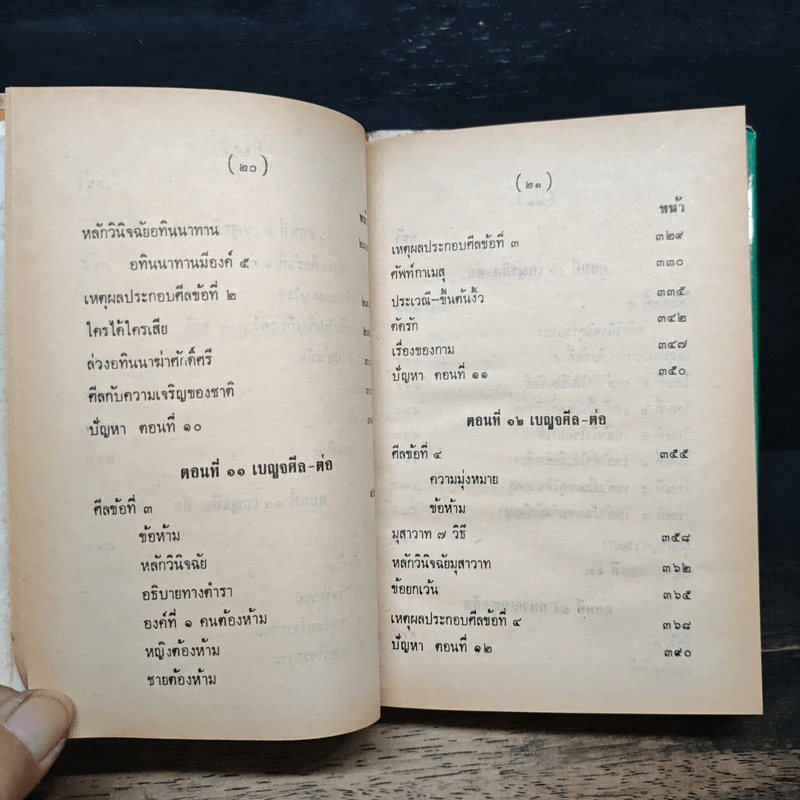 (๒๐)
หลักวินิจฉัยอทินนาทาน
อทินนาทานมีองค์ ๕
เหตุผลประกอบศีลข้อที่ ๒
ใครได้ใครเสีย
ล่วงอทินนาฆ่าศักดิ์ศรี
ศีลกับความเจริญของชาติ
ปัญหา ตอนที่ ๑๐
ตอนที่ ๑๑ เบญจศีล-ต่อ
ศีลข้อที่ ๓
ข้อห้าม
หลักวินิจฉัย
อธิบายทางตำรา
องค์ที่ ๑ คนต้องห้าม
หญิงต้องห้าม
ชายต้องห้าม
(๒๑)
หน้า
เหตุผลประกอบศีลข้อที่ ๓ ๓๒๙
ศัพท์กาเมสุ ๓๓๐
ประเวณี-ขึ้นต้นงิ้ว ๓๓๕
ตัดรัก ๓๔๒
เรื่องของกาม ๓๔๗
ปัญหา ตอนที่ ๑๑ ๓๕๐
ตอนที่ ๑๒ เบญจศีล-ต่อ
ศีลข้อที่ ๔ ๓๕๕
ความมุ่งหมาย
ข้อห้าม
มุสาวาท ๗ วิธี ๓๕๘
หลักวินิจฉัยมุสาวาท ๓๖๒
ข้อยกเว้น ๓๖๕
เหตุผลประกอบศีลข้อที่ ๔ ๓๖๘
ปัญหา ตอนที่ ๑๒ ๓๙๐